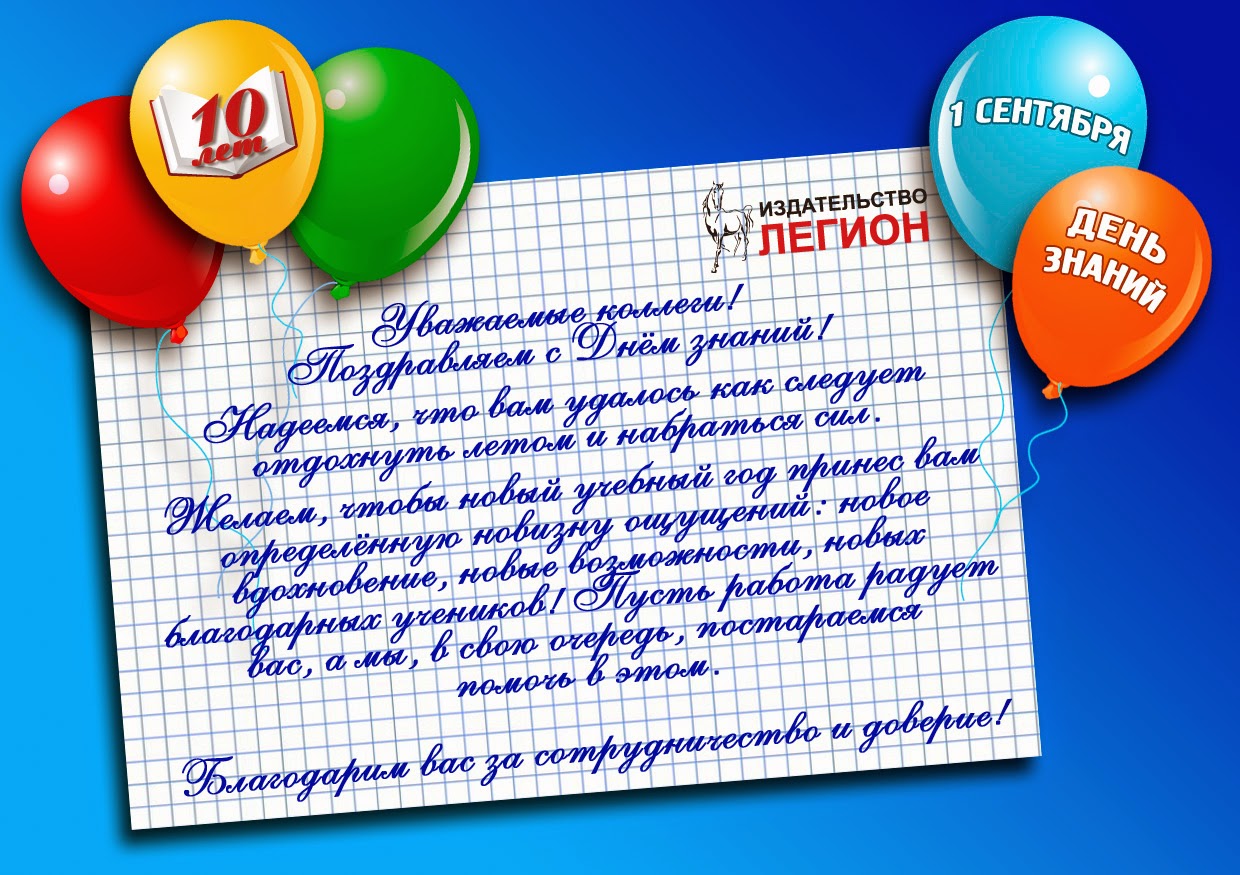 10
лет
1 СЕНТЯБРЯ
ДЕНЬ
ЗНАНИЙ
ИЗДАТЕЛЬСТВО
ЛЕГИОН
Уважаемые коллеги!
Поздравляем с Днём знаний!
Надеемся, что вам удалось как следует
отдохнуть летом и набраться сил.
Желаем, чтобы новый учебный год принес вам
определённую новизну ощущений: новое
вдохновение, новые возможности, новых
благодарных учеников! Пусть работа радует
вас, а мы, в свою очередь, постараемся
помочь в этом.
Благодарим вас за сотрудничество и доверие!